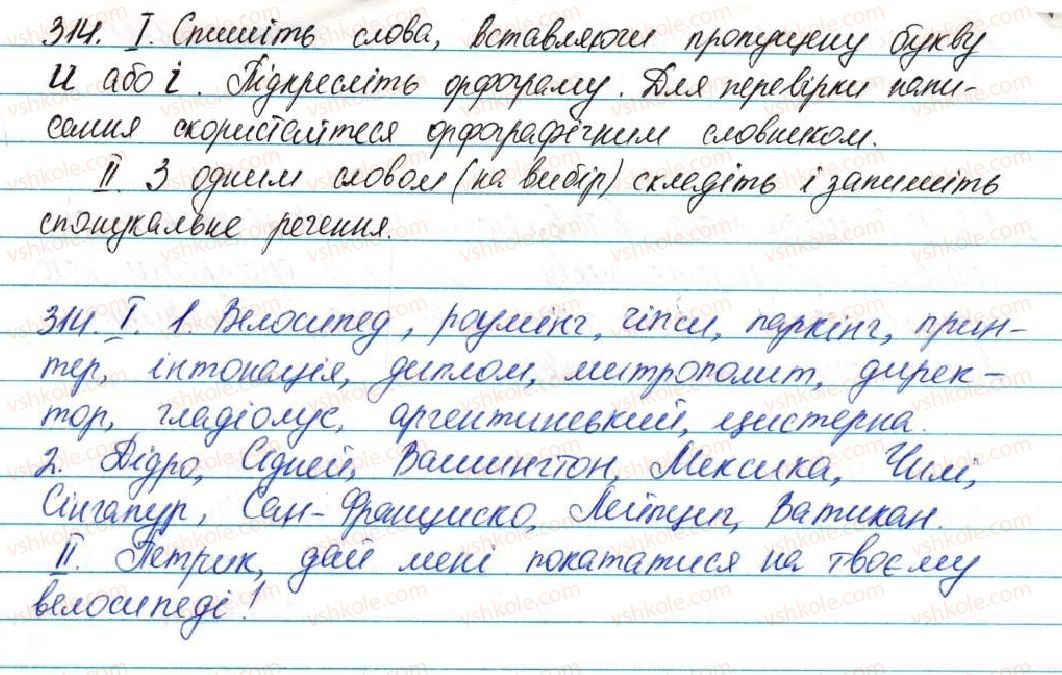 314. I. Спишіть слова, вставляючи пропущену букву
и або і. Підкресліть орфограму. Для перевірки напи-
сання скористайтеся орфографічним словником.
II. З одним словом (на вибір) складіть і запишіть
спонукальне речення.
314. I. 1. Велосипед, роумінг, чіпси, паркінг, прин-
тер, інтонація, диплом, митрополит, дирек-
тор, гладіолус, аргентинський, цистерна.
2. Дідро, Сідней, Вашингтон, Мексика, Чилі,
Сінгапур, Сан-Франциско, Лейпциг, Ватикан.
II. Петрик, дай мені покататися на твоєму
велосипеді!